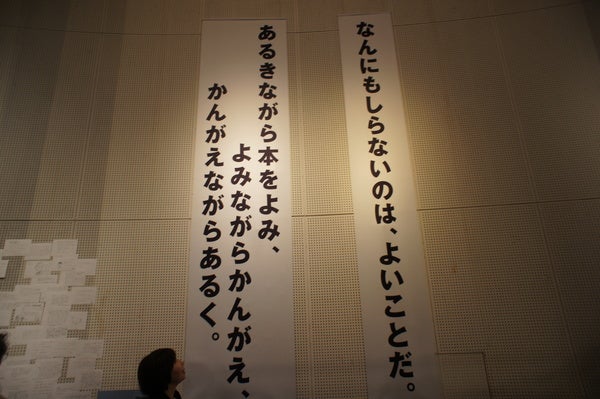 なんにもしらないのは、よいことだ。
あるきながら本をよみ、
よみながらかんがえ、
かんがえながらあるく。